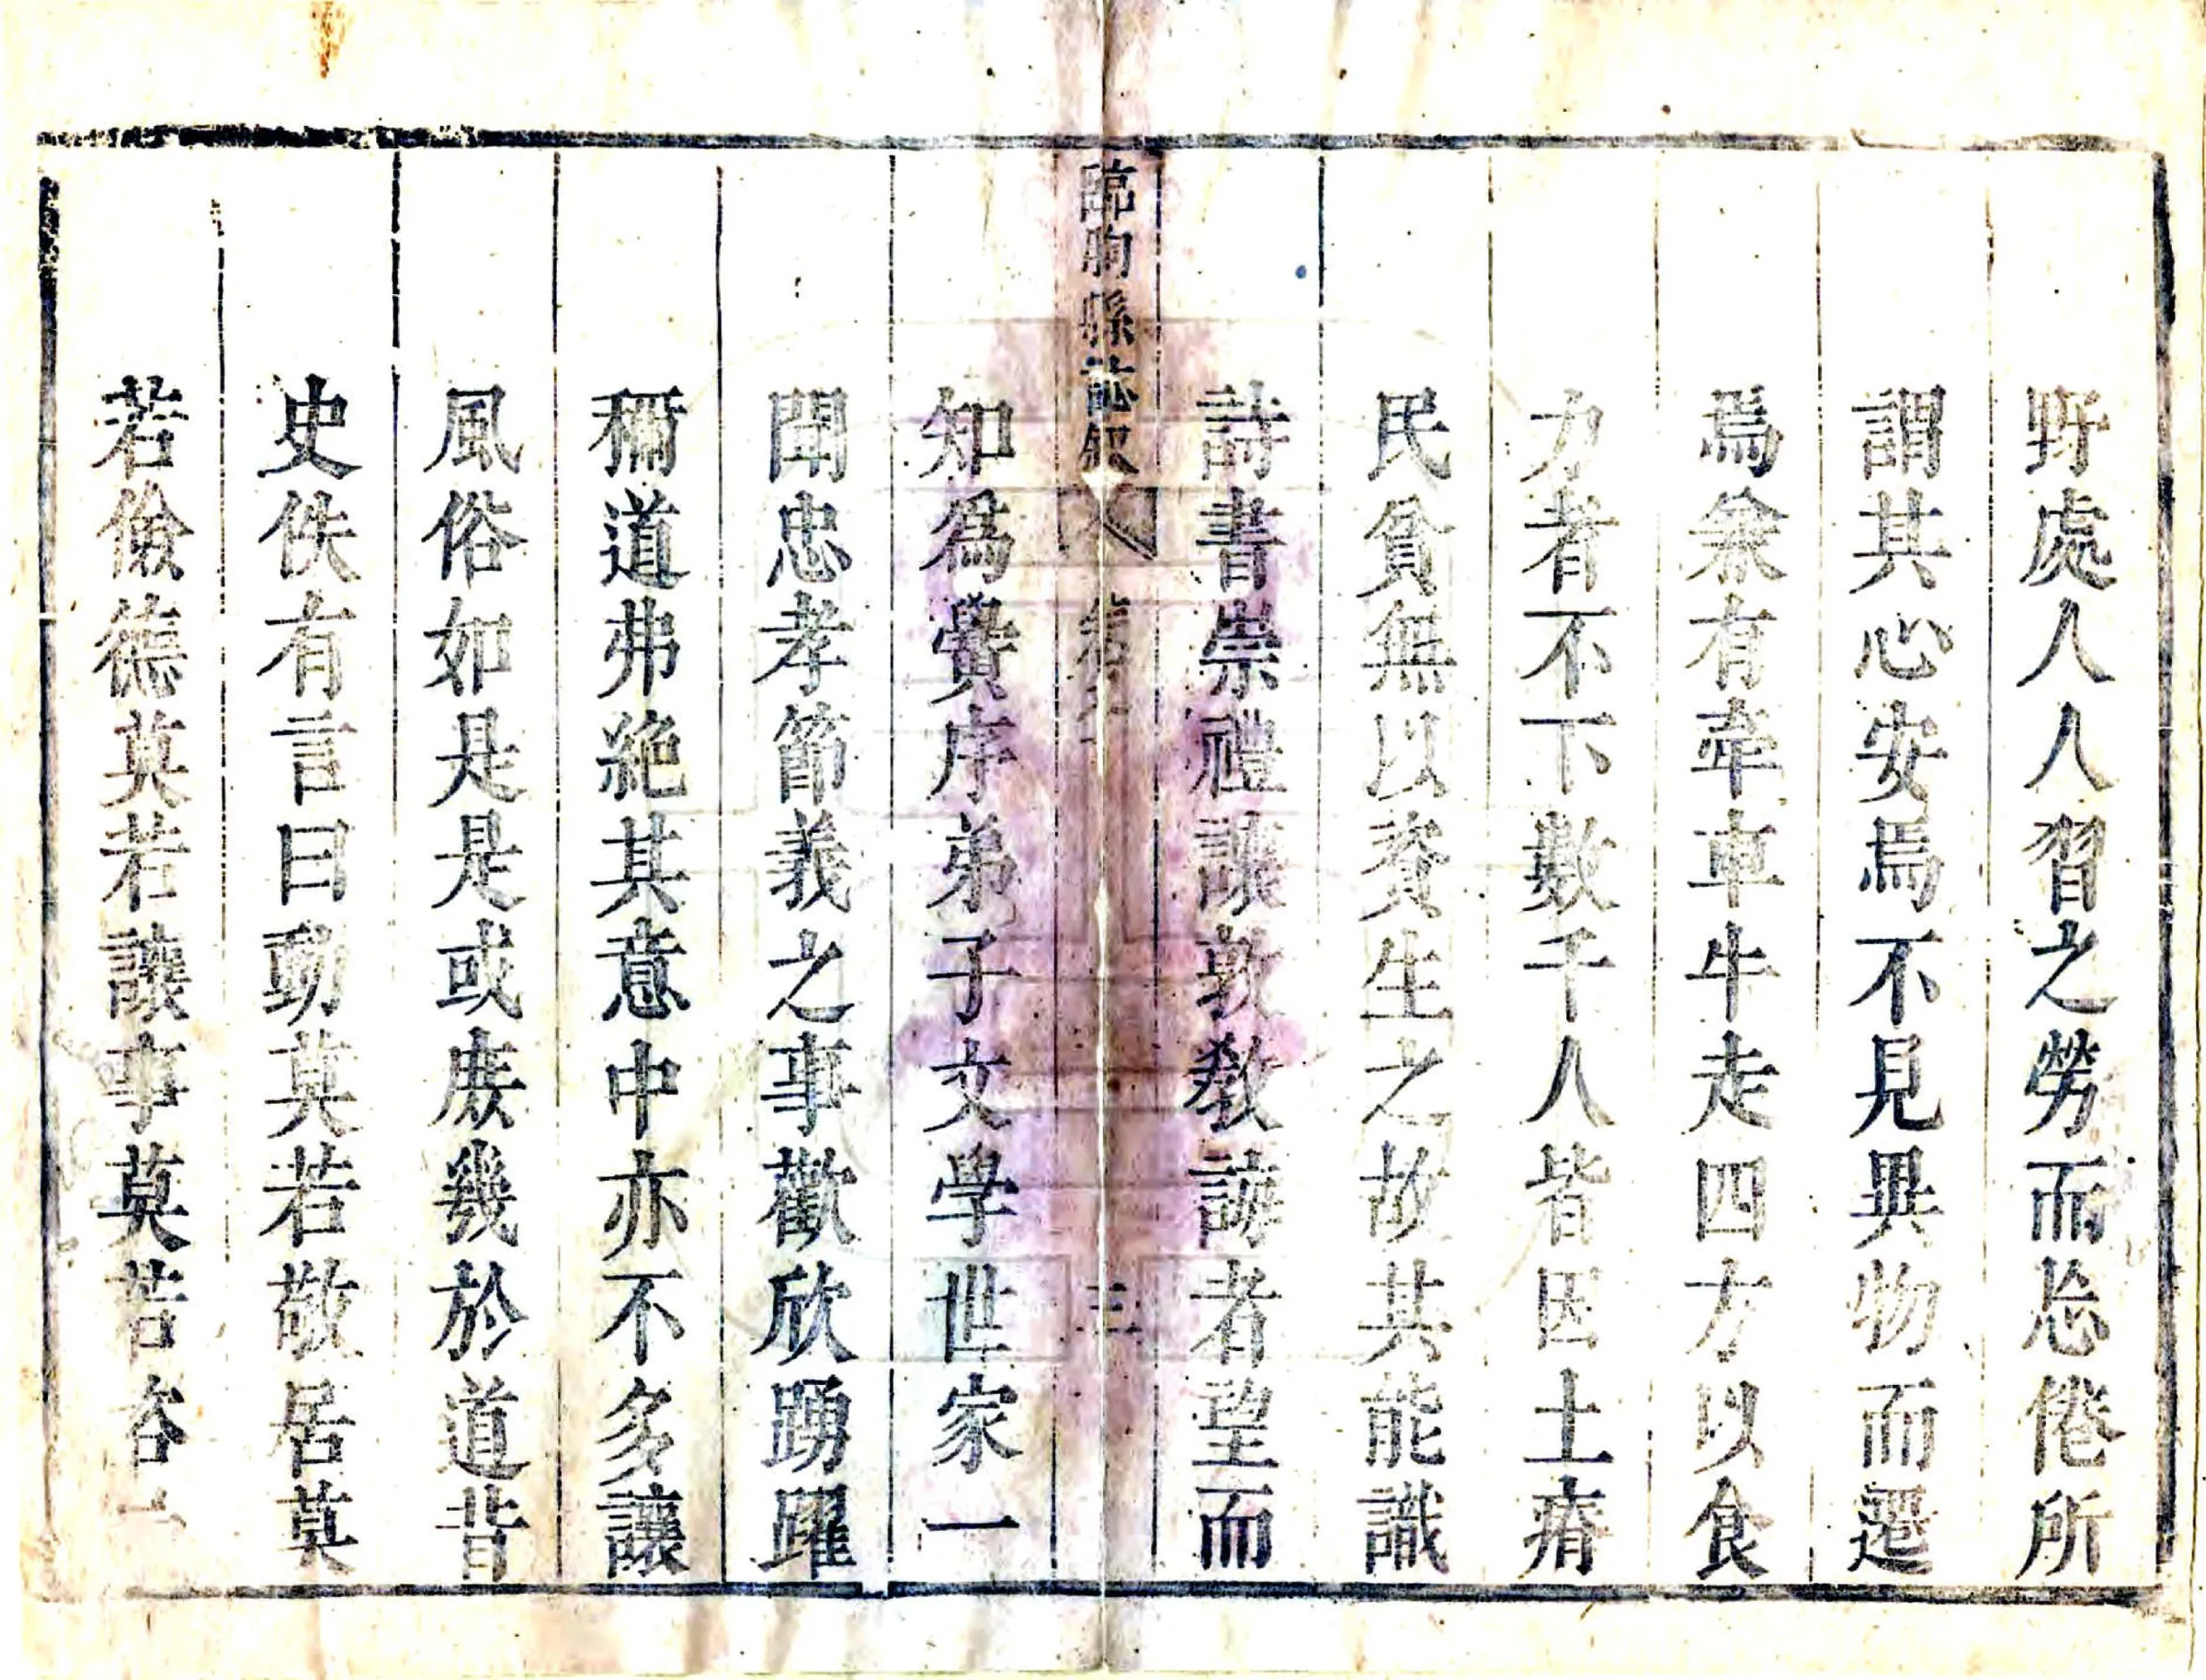 野處人人習之勞而忘倦所
謂其心安焉不見異物而遷
焉兼有牽車牛走四方以食
力者不下數千人皆因土瘠
民貧無以資生之故其能識
詩書崇禮讓敦教諺者望而
臨朐縣誌叙 三
知爲黌序弟子文學世家一
聞忠孝節義之事歡欣踴躍
稱道弗絶其意中亦不多讓
風俗如是是或庻幾於道昔
史佚有言曰動莫若敬居莫
若儉德莫若讓事莫若咨